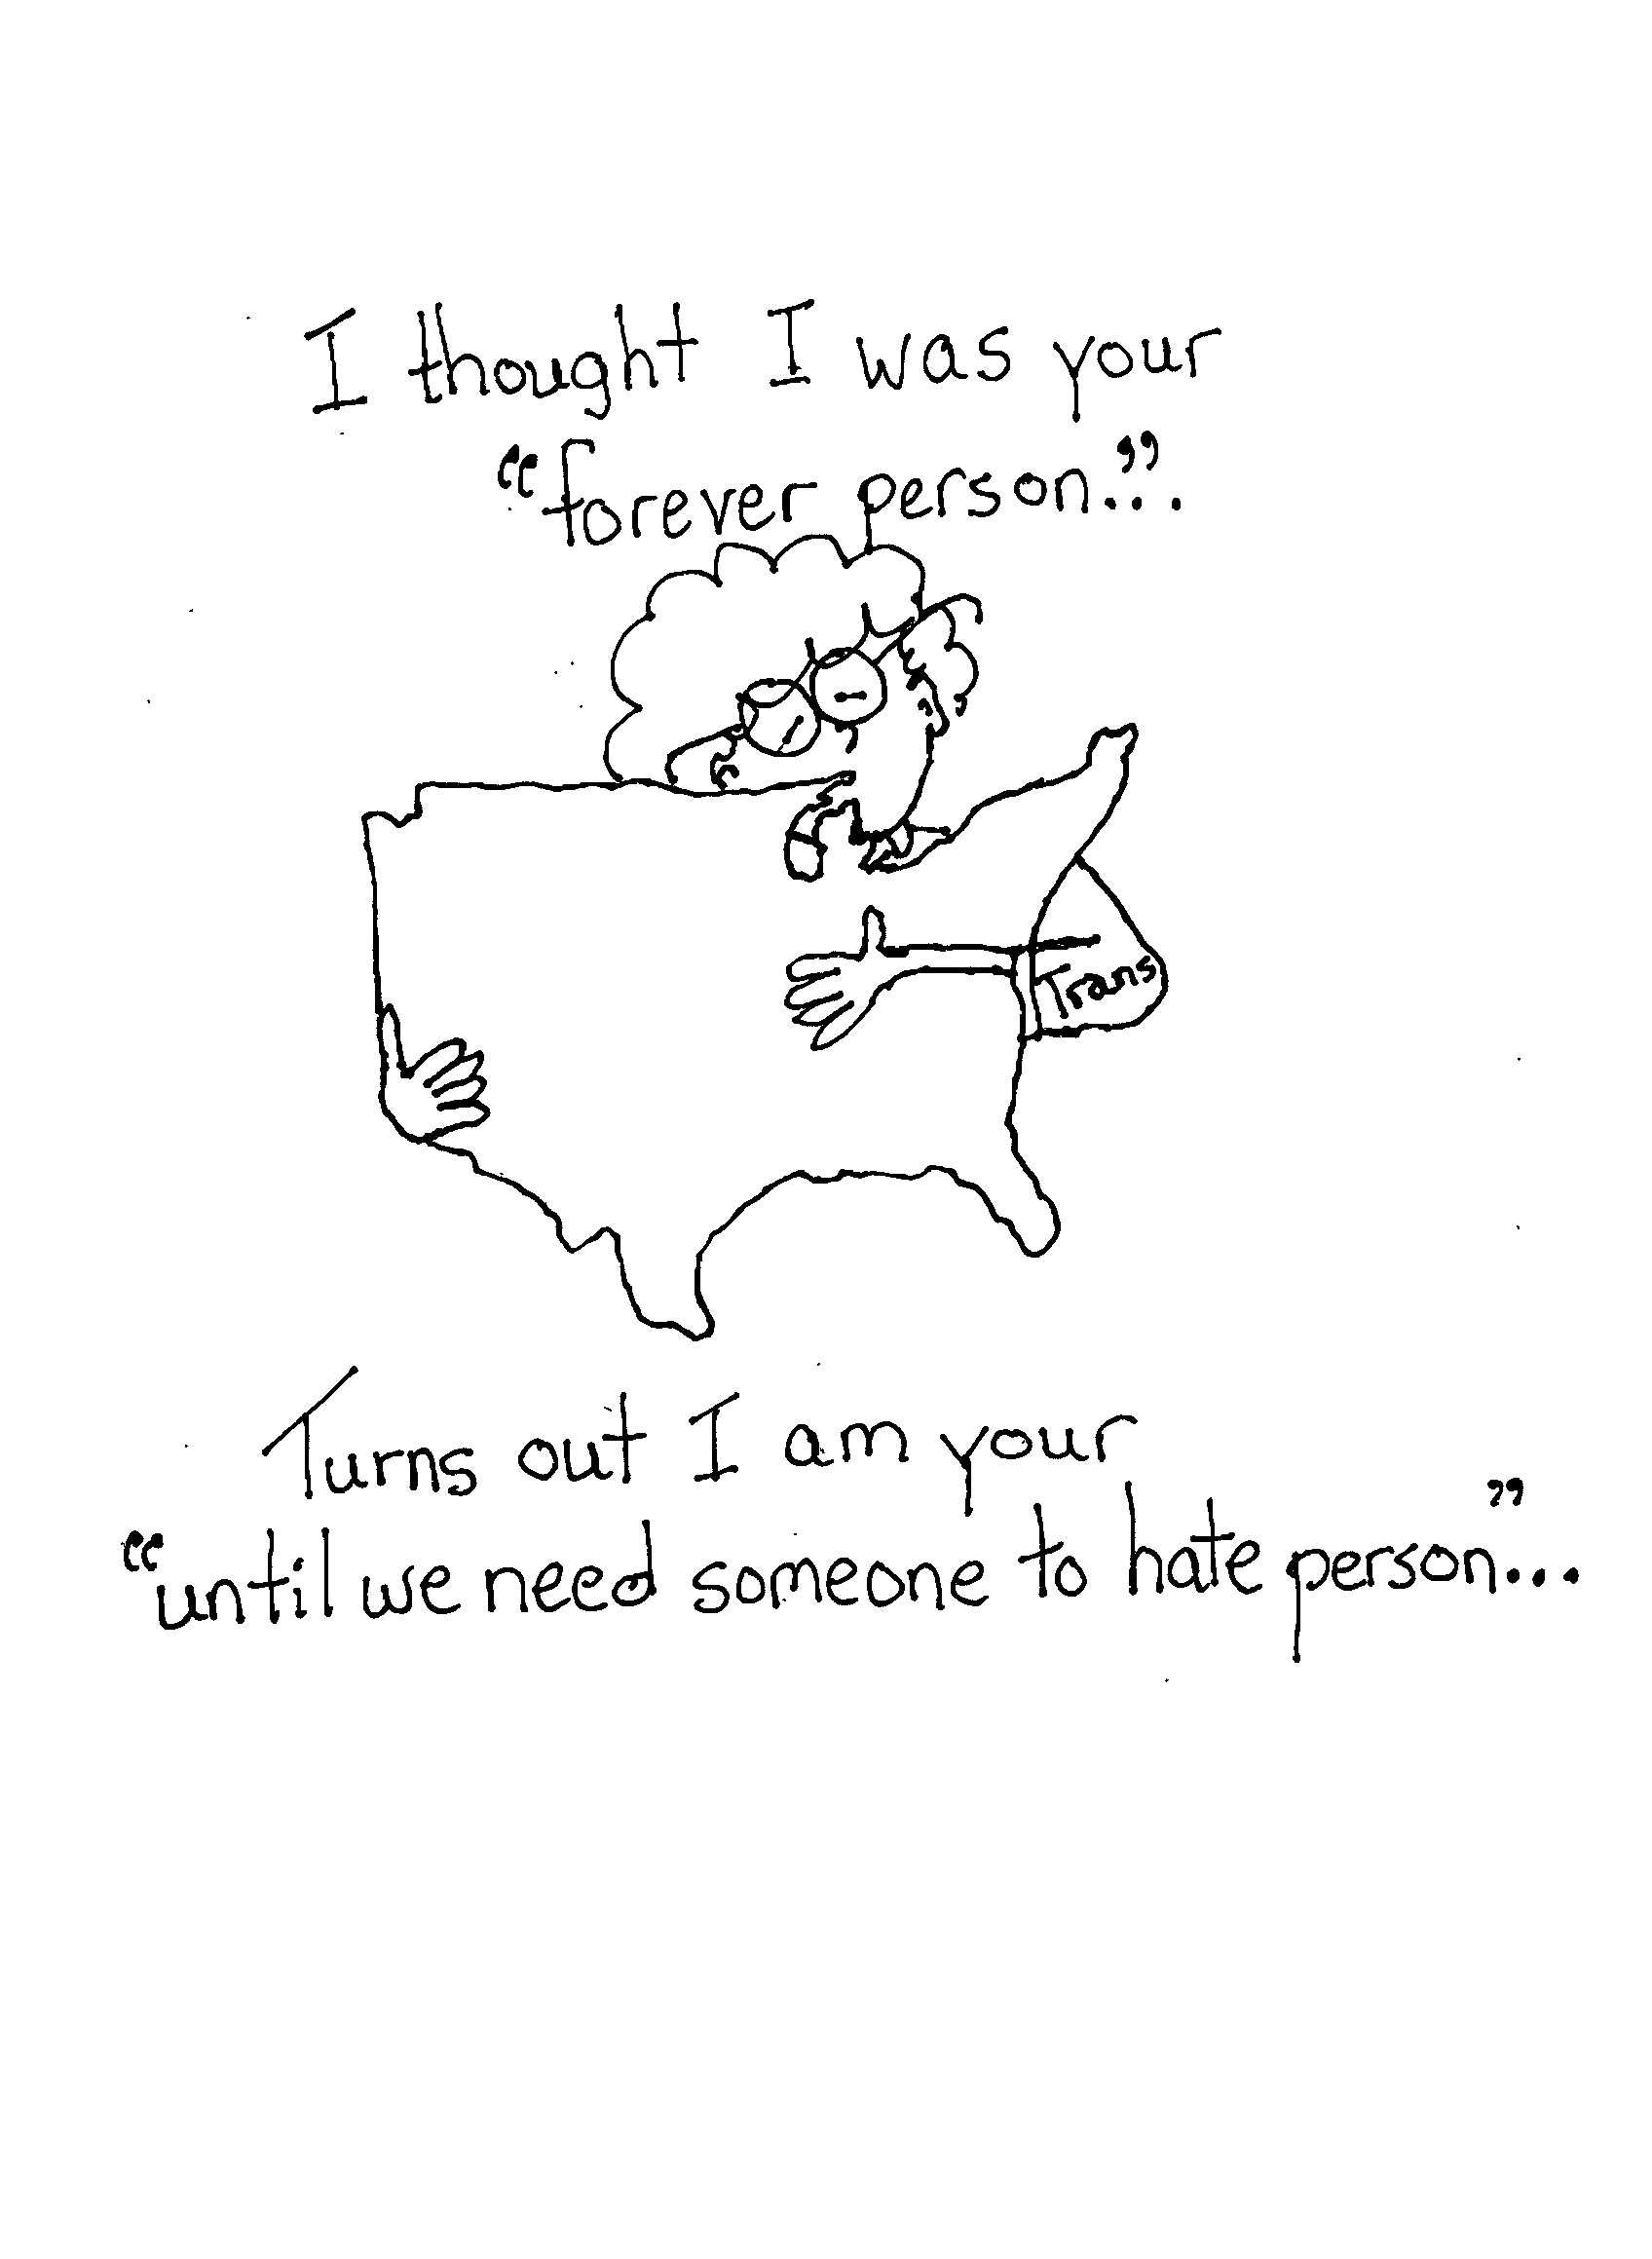 I thought I was your
"forever person..."
Trans
Turns out I am your
"until we need someone to hate person..."